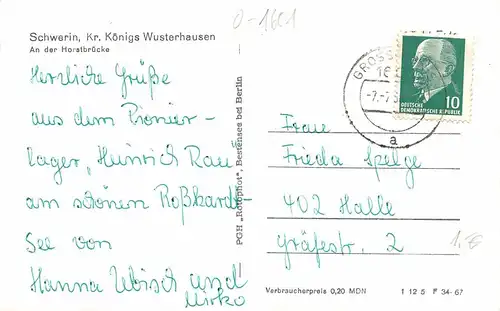 0-1601
Schwerin, Kr. Königs Wusterhausen
An der Horstbrücke
Herzliche Grüße
aus dem Pionier-
lager „Heinrich Rau"
am schönen Roßkardt-
See von
Hanna Ubisch und
Mirko
PGH „Rotophot", Bestensee bei Berlin
GROSS
16
-7.-7.
a
DEUTSCHE
DEMOKRATISCHE REPUBLIK
10
Frau
Frieda Spelge
402 Halle
Gräfestr. 2
1,€
Verbraucherpreis 0,20 MDN
1 12 5 F 34-67